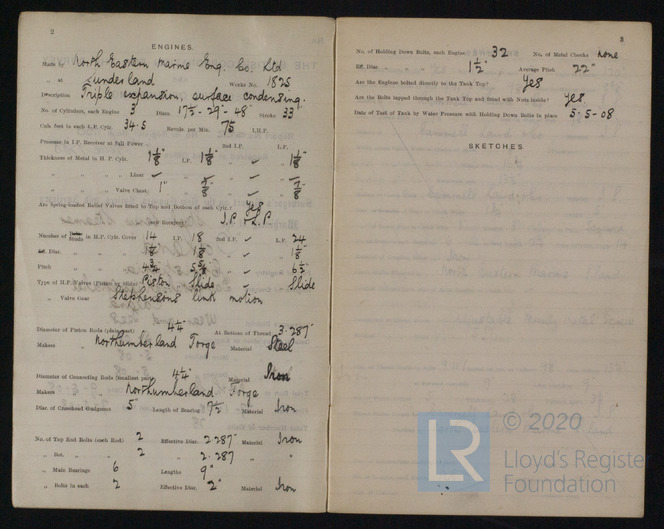 2
ENGINES.
Made by North Eastern Marine Eng. Co. Ltd
„ at Sunderland Works No. 1825
Description Triple expansion, surface condensing.
No. of Cylinders, each Engine 3 Diam. 17½ - 29 - 48" Stroke 33
Cub. feet in each L.P. Cylr. 34.5 Revols per Min. 75 I.H.P.
Pressure in I.P. Receiver at full Power 2nd I.P. L.P.
Thickness of Metal in H.P. Cylr. 1⅛ I.P. 1⅛" „ 1⅛"
„ „ Liner „ „
„ „ Valve Chest 1" „ ⅞" „ ⅞"
Are Spring-loaded Relief Valves fitted to Top and Bottom of each Cylr.? Yes
each Receiver? I.P. & L.P.
Number of Studs in H.P. Cylr. Cover 14 I.P. 18 2nd I.P. L.P. 24
Eff. Diar. 1⅛" „ 1⅛" „ „ 1⅛"
Pitch „ „ „ 6½"
Type of H.P. Valves (Piston or Slide) Piston Slide Slide
„ Valve Gear Stephensons link motion
Diameter of Piston Rods (plain part) 4¼" At Bottom of Thread 3.287"
Makers „ Northumberland Forge Material Steel
Diameter of Connecting Rods (smallest part) 4¼" Material Iron
Makers „ Northumberland Forge
Diar. of Crosshead Gudgeons 5" Length of Bearing 7½" Material Iron
No. of Top End Bolts (each Rod) 2 Effective Diar. 2.287" Material Iron
„ Bot. „ „ 2 „ 2.287 „ „
„ Main Bearings 6 Lengths 9"
„ Bolts in each 2 Effective Diar. 2" Material Iron
3
No. of Holding Down Bolts, each Engine 32 No. of Metal Chocks none
Eff. Diar. 1½" Average Pitch 22"
Are the Engines bolted directly to the Tank Top? Yes
Are the Bolts tapped through the Tank Top and fitted with Nuts inside? Yes
Date of Test of Tank by Water Pressure with Holding Down Bolts in place 5-5-08
SKETCHES.
© 2020
LR
Lloyd's Register
Foundation